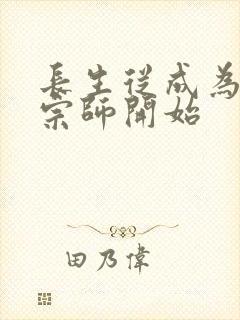 長生從成為
宗師開始
田乃偉